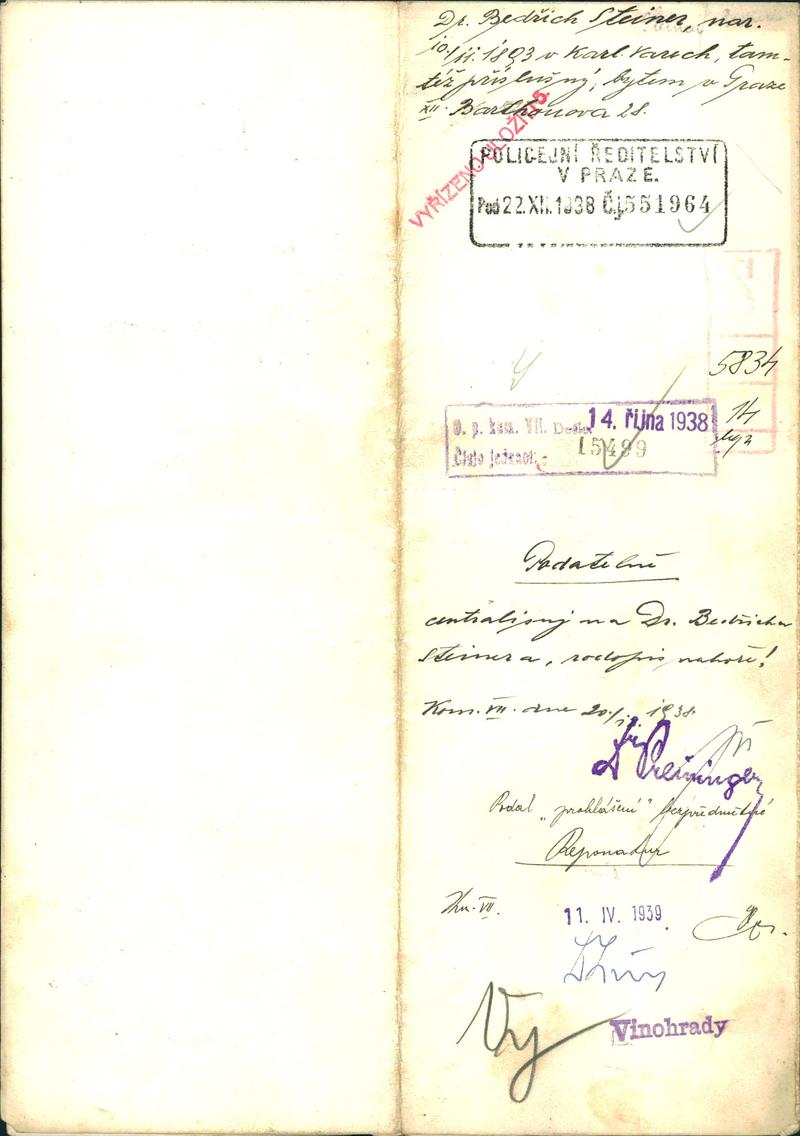 Dr. Bedřich Steiner, nar.
10/11. 1893 v Karl. Varech, tam-
též příslušný, bytem v Praze
XII. Barthouova 28.
VYŘÍZENO ULOŽITI 5.
POLICEJNÍ ŘEDITELSTVÍ
V PRAZE.
Pod 22.XII.1938 Čj. 551964
5834
14
O. p. kom. VII. Došlo: 14. října 1938
Číslo jednot. 15499
Podatelně
centralisuj na Dr. Bedřicha
Steinera, rodopis nahoře!
Kom. VII. dne 20/ 1938
Dr Preininger
Podal „prohlášení" bezpředmětné
Reponatur
VII.
11. IV. 1939
Vy
Vinohrady